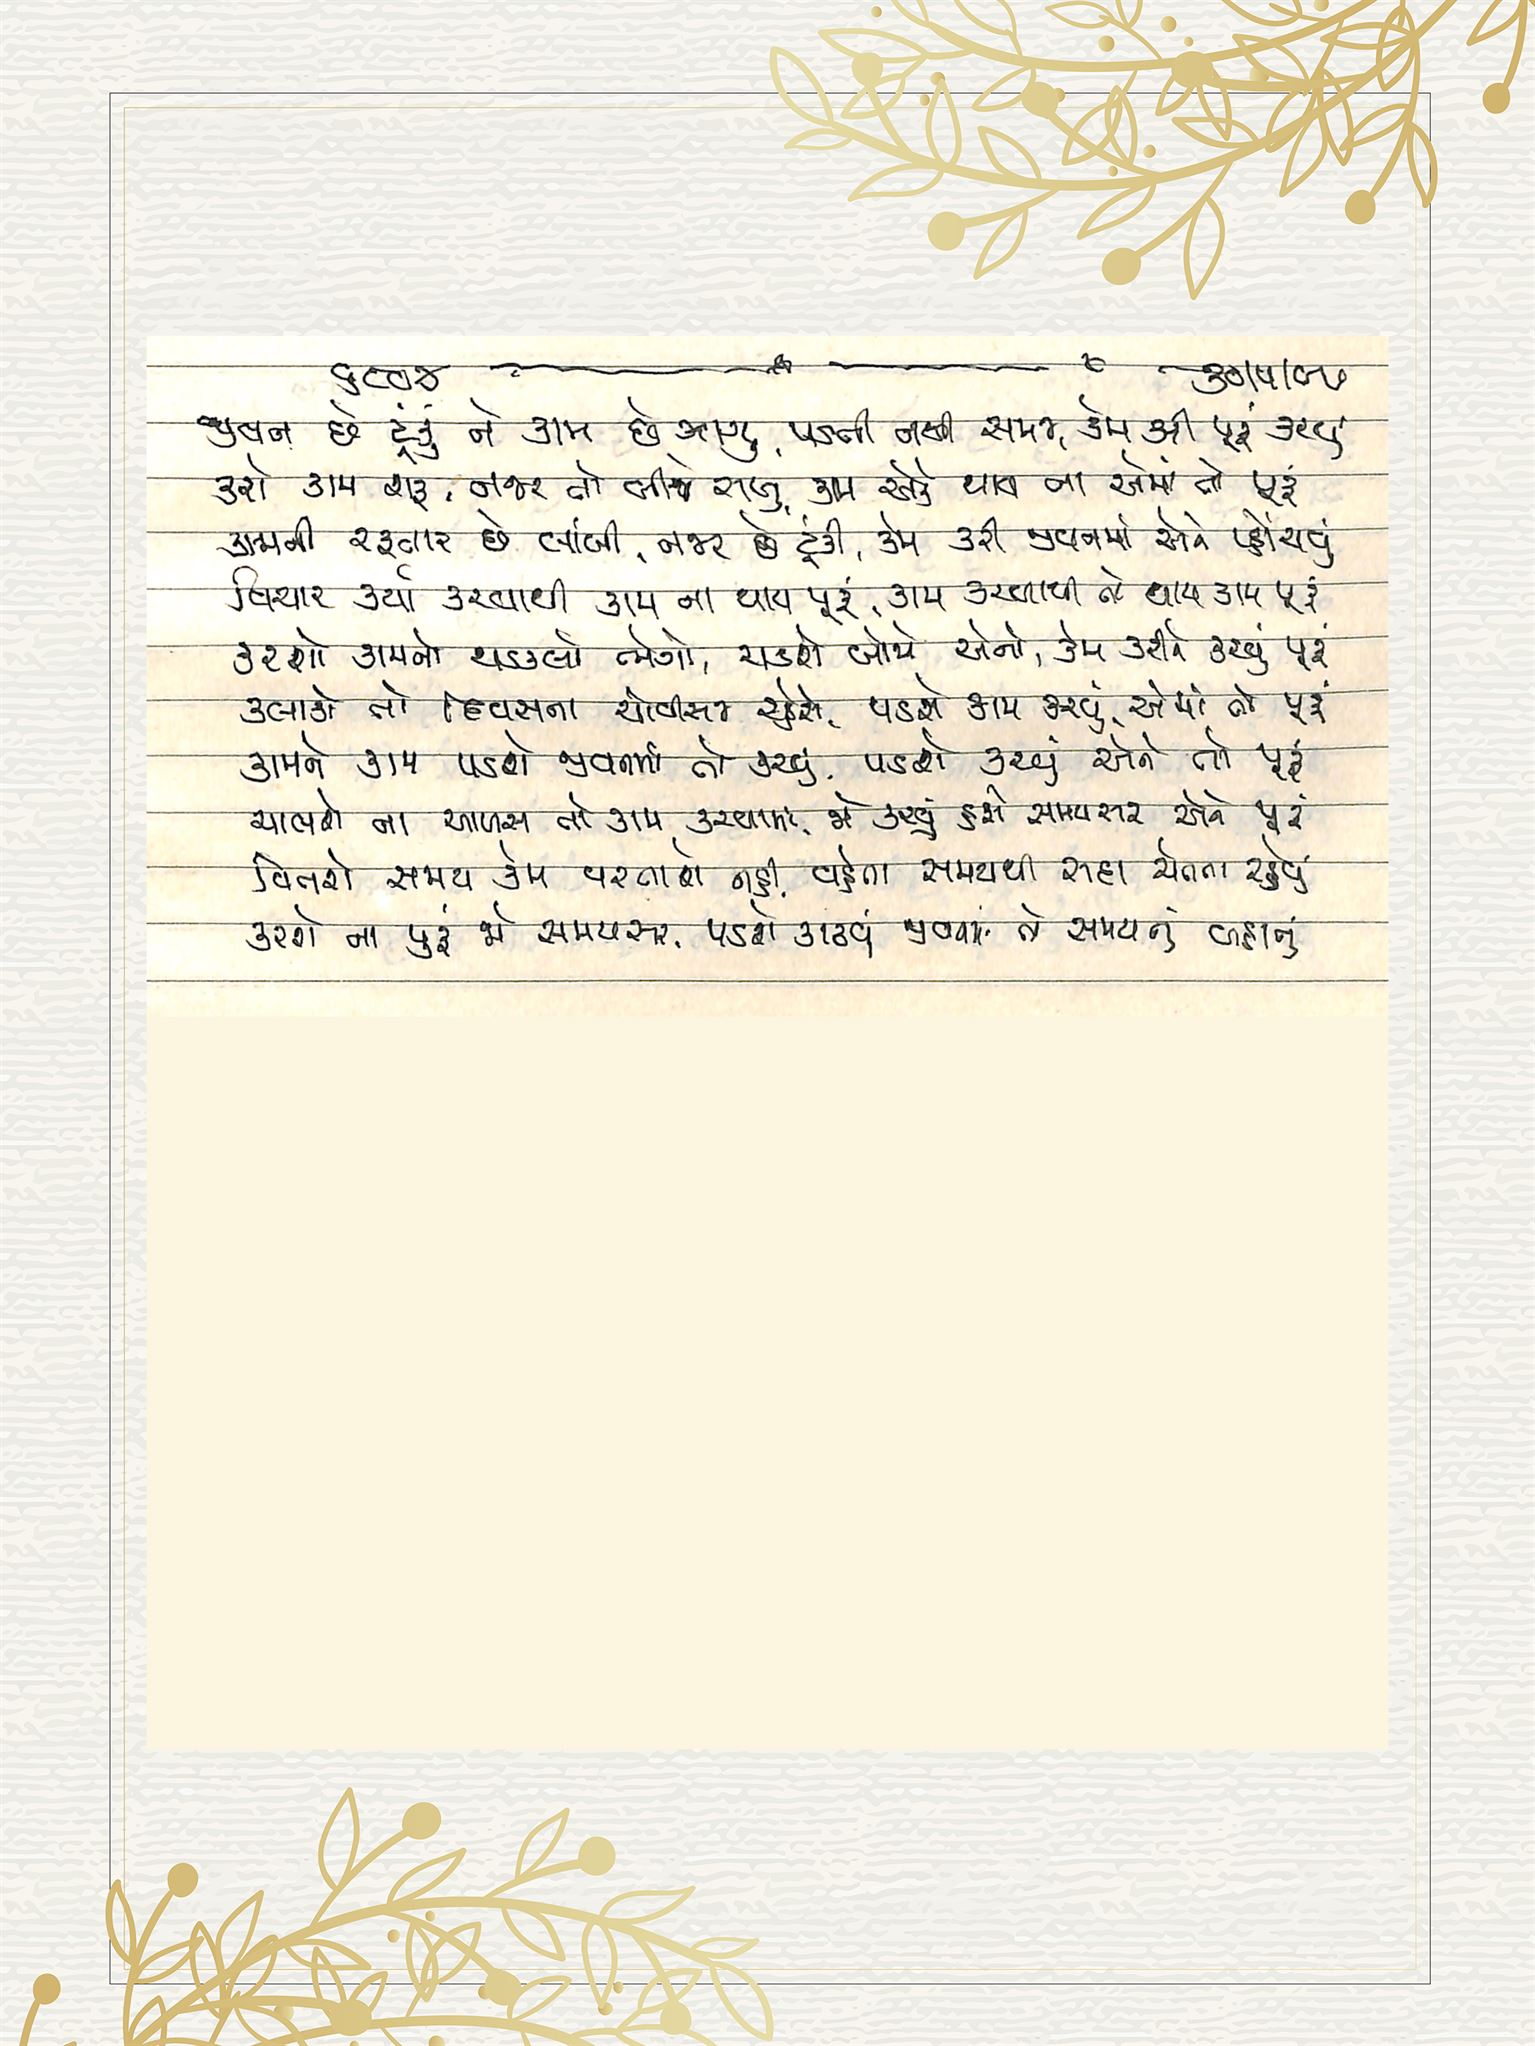 જીવન છે ટૂંકું ને કામ છે ઝાઝું, પડતી નથી સમજ, કેમ કરી પૂરું કરવું
કરો કામ શરૂ, નજર તો બીજે રાખું, કામ એકે થાય ના એમાં તો પૂરું
કામની રફતાર છે લાંબી, નજર છે ટૂંકી, કેમ કરી જીવનમાં એને પહોંચવું
વિચાર કર્યા કરવાથી કામ ના થાય પૂરું, કામ કરવાથી તો થાય કામ પૂરું
કરશો કામનો થડકલો ભેગો, ચડશે બોજો એનો, કેમ કરીને કરવું પૂરું
કલાકો તો દિવસના ચોવીસજ રહેશે, પડશે કામ કરવું, એમાં તો પૂરું
કામને કામ પડશે જીવનમાં તો કરવું, પડશે કરવું એને તો પૂરું
ચાલશે ના આળસ તો કામ કરવામાં, જે કરવું હશે સમયસર એને પૂરું
વિતશે સમય કેમ વરતાશે નહી, વહેતા સમયથી સદા ચેતતા રહેવું
કરશો ના પુરું જો સમયસર, પડશે કાઢવું જીવનમાં તો સમયનું બહાનું